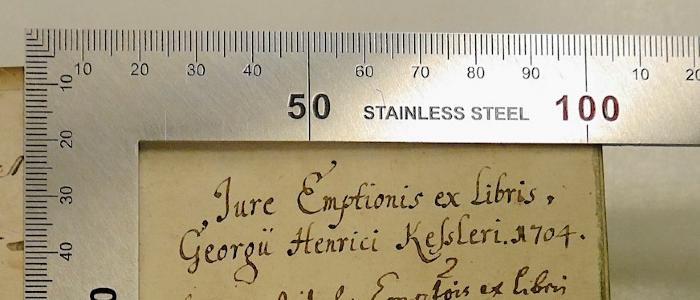 10 20 30 40 50 60 70 80 90 100 10 20
STAINLESS STEEL
10
20
30
40
Jure Emptionis ex Libris.
Georgii Henrici Kessleri. 1704.
ex libris